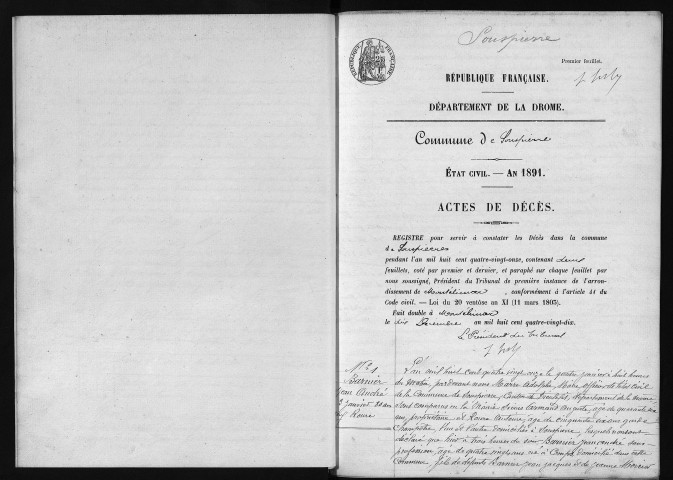 Souspierre
Premier feuillet.
RÉPUBLIQUE FRANÇAISE.
DÉPARTEMENT DE LA DROME.
Commune de Souspierre
ÉTAT CIVIL. — AN 1891.
ACTES DE DÉCÈS.
REGISTRE pour servir à constater les Décès dans la commune
de Souspierre
pendant l'an mil huit cent quatre-vingt-onze, contenant deux
feuillets, coté par premier et dernier, et paraphé sur chaque feuillet par
nous soussigné, Président du Tribunal de première instance de l'arron-
dissement de Montélimar, conformément à l'article 41 du
Code civil. — Loi du 20 ventôse an XI (11 mars 1803).
Fait double à Montélimar
le dix Decembre an mil huit cent quatre-vingt-dix.
Le Président du Tribunal
N° 1
Barnier
Jean André
3 janvier 80 ans
Vf Roura
L'an mil huit cent quatre vingt onze le quatre janvier à huit heures
du matin, pardevant nous Maire officier de l'état civil
de la Commune de Souspierre, Canton de Dieulefit, département de la Drôme
sont comparus en la Mairie Armand Auguste, âgé de quarante
ans, propriétaire et Roura Antoine, âgé de cinquante
l'un et l'autre domiciliés à Souspierre, lesquels nous ont
déclaré que hier à trois heures du soir Barnier jean andré sans
profession, âgé de quatre vingts ans né à Comps, domicilié dans cette
Commune, fils de défunts Barnier jean jacques et de jeanne